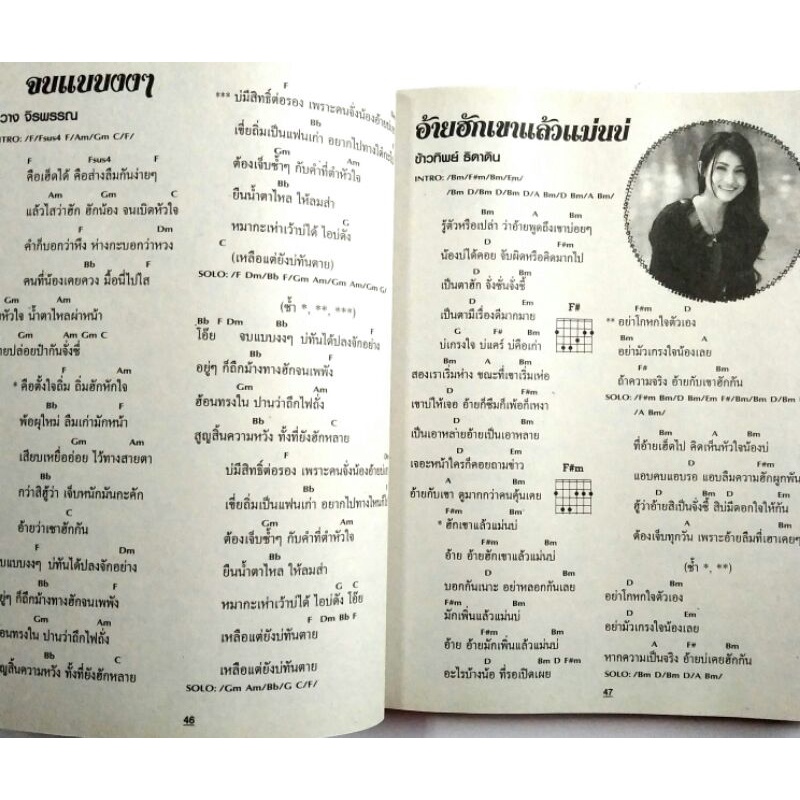 จบแบบงงๆ
วาง จิรพรรณ
NTRO: /F/Fsus4 F/Am/Gm C/F/
F Fsus4 F
คือเฮ็ดได้ คือส่างลืมกันง่ายๆ
Am Gm C
แล้วไสว่าฮัก ฮักน้อง จนเบิดหัวใจ
F Dm
คำก็บอกว่าหึง ห่างกะบอกว่าหวง
Bb F
คนที่น้องเคยควง มื้อนี้ไปใส
Gm Am
หัวใจ น้ำตาไหลผ่าหน้า
Gm Am Gm C
ายปล่อยป๋ากันจั่งซี่
F Am
* คือตั้งใจถิ่ม ลืมฮักหักใจ
Bb F
พ้อผุใหม่ ลืมเก่ามักหน้า
Gm Am
เสียบเหยื่ออ่อย ไว้ทางสายตา
Bb C
กว่าสิฮู้ว่า เจ็บหนักมันกะคัก
F
อ้ายว่าเซาฮักกัน
F Dm
บแบบงงๆ บ่ทันได้ปลงจักอย่าง
Bb F
ยู่ๆ ก็ถึกม้างทางฮักจนเพพัง
Gm Am
อนทรงใน ปานว่าถืกไฟถั่ง
Bb C
ูญสิ้นความหวัง ทั้งที่ยังฮักหลาย
F
*** บ่มีสิทธิ์ต่อรอง เพราะคนจั่งน้องอ้าย
Bb
เขี่ยถิ่มเป็นแฟนเก่า อยากไปทางได๋กะไป
Gm Am
ต้องเจ็บซ้ำๆ กับคำที่ตำหัวใจ
Bb
ยืนน้ำตาไหล ให้ลมสำ
G
หมากะเห่าเว้าบ่ได้ ไอบ่ดัง
C
(เหลือแต่ยังบ่ทันตาย)
SOLO: /F Dm/Bb F/Gm Am/Gm Am/Gm G/
(ซ้ำ *, **, ***)
Bb F Dm Bb F
โอ๊ย จบแบบงงๆ บ่ทันได้ปลงจักอย่าง
Bb F
อยู่ๆ ก็ถึกม้างทางฮักจนเพพัง
Gm Am
ฮ้อนทรงใน ปานว่าถืกไฟถั่ง
Bb C
สูญสิ้นความหวัง ทั้งที่ยังฮักหลาย
F
บ่มีสิทธิ์ต่อรอง เพราะคนจั่งน้องอ้ายบ่
Bb F
เขี่ยถิ่มเป็นแฟนเก่า อยากไปทางไหนก็
Gm Am
ต้องเจ็บซ้ำๆ กับคำที่ตำหัวใจ
Bb
ยืนน้ำตาไหล ให้ลมสำ
G C
หมากะเห่าเว้าบ่ได้ ไอบ่ดัง โอ๊ย
F Dm Bb F
เหลือแต่ยังบ่ทันตาย
เหลือแต่ยังบ่ทันตาย
SOLO: /Gm Am/Bb/G C/F/
46
อ้ายฮักเขาแล้วแม่นบ่
ข้าวทิพย์ ธิดาดิน
INTRO: /Bm/F#m/Bm/Em/
/Bm D/Bm D/Bm D/A Bm/D Bm/A Bm/
Bm A Bm
รู้ตัวหรือเปล่า ว่าอ้ายพูดถึงเขาบ่อยๆ
D F#m
น้องบ่ได้คอย จับผิดหรือคิดมากไป
D Bm
เป็นตาฮัก จั่งซั่นจั่งซี้
D Em
เป็นตามีเรื่องดีมากมาย
G F# Bm
บ่เกรงใจ บ่แคร์ บ่คือเก่า
F#
Bm A Bm
สองเราเริ่มห่าง ขณะที่เขาเริ่มเห่อ
D F#m
เขาบ่ให้เจอ อ้ายก็ซึมก็เพ้อก็เหงา
D Bm
เป็นเอาหล่ายอ้ายเป็นเอาหลาย
D Em
เจอะหน้าใครก็คอยถามข่าว
F#m
A Bm
อ้ายกับเขา ดูมากกว่าคนคุ้นเคย
F#m Bm
* ฮักเขาแล้วแม่นบ่
F#m Bm
อ้าย อ้ายฮักเขาแล้วแม่นบ่
D A Bm
บอกกันเนาะ อย่าหลอกกันเลย
F#m Bm
มักเพิ่นแล้วแม่นบ่
F#m Bm
อ้าย อ้ายมักเพิ่นแล้วแม่นบ่
D Bm D F#m
อะไรบ้างน้อ ที่รอเปิดเผย
F#m D
** อย่าโกหกใจตัวเอง
A Bm
อย่ามัวเกรงใจน้องเลย
F# Bm
ถ้าความจริง อ้ายกับเขาฮักกัน
SOLO: /F#m Bm/D Bm/Em F#/Bm/Bm D/Bm
/A Bm/
Bm A Bm
ที่อ้ายเฮ็ดไป คิดเห็นหัวใจน้องบ่
D F#m
แอบคบแอบรอ แอบลืมความฮักผูกพัน
D Bm D Em
ฮู้ว่าอ้ายสิเป็นจั่งซี้ สิบ่มีดอกใจให้กัน
A Bm
ต้องเจ็บทุกวัน เพราะอ้ายลืมที่เฮาเคยๆ
(ซ้ำ *, **)
D Bm
อย่าโกหกใจตัวเอง
D Em
อย่ามัวเกรงใจน้องเลย
A F# Bm
หากความเป็นจริง อ้ายบ่เคยฮักกัน
SOLO: /Bm D/Bm D/A Bm/
47